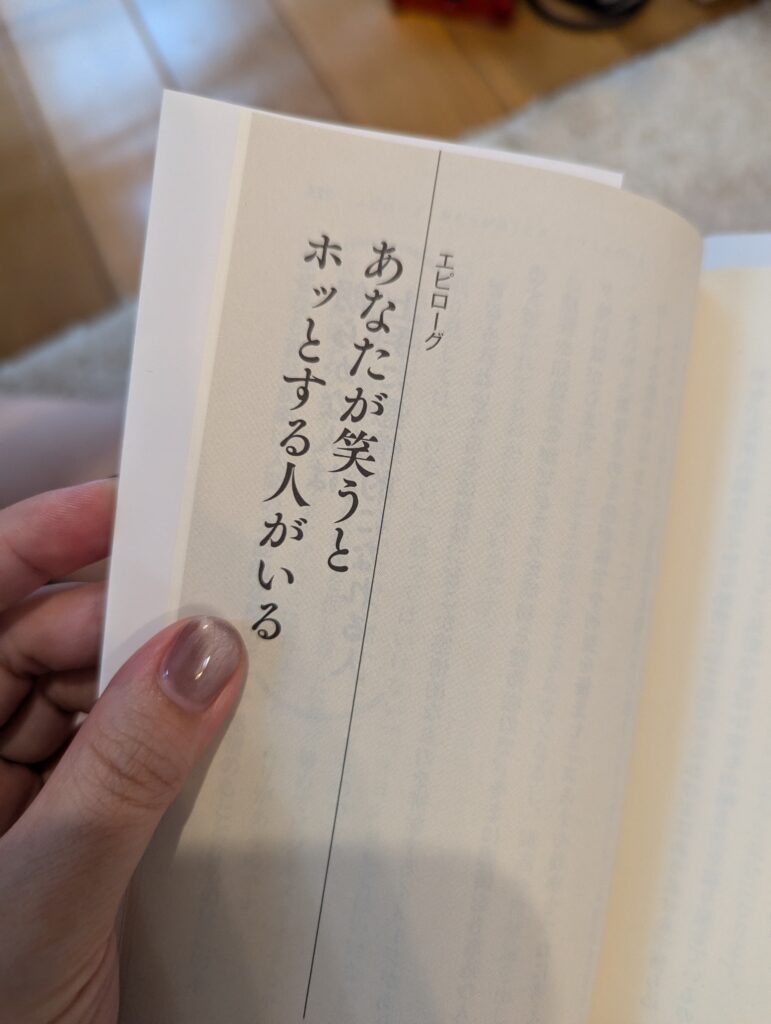 エピローグ
あなたが笑うと
ホッとする人がいる